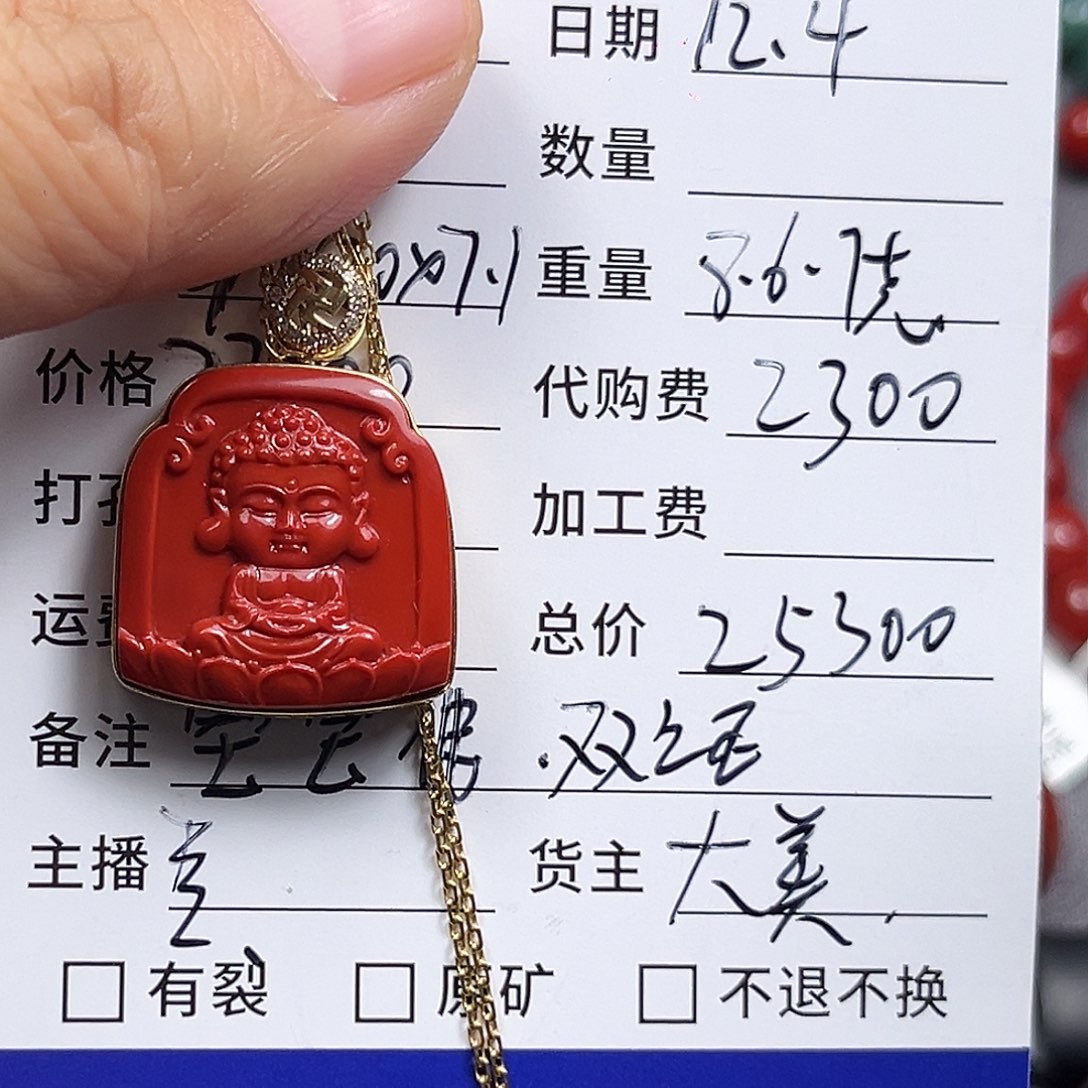 日期 12.4
数量
x7.1 重量 8.6.7克
价格 代购费 2300
打 加工费
运费 总价 25300
备注 宝宝佛.双红
主播 兰 货主 大美.
□有裂 □原矿 □不退不换